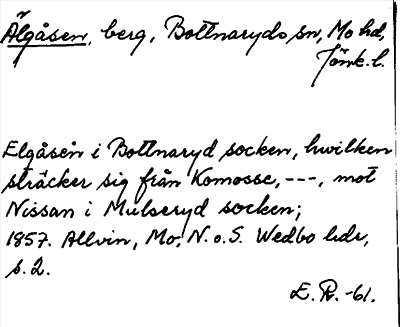 Älgåsen, berg, Bottnaryds sn, Mo hd,
Jönk. l.
Elgåsen i Bottnaryd socken, hwilken
sträcker sig från Komosse, ---, mot
Nissan i Mulseryd socken;
1857. Allvin, Mo, N. o. S. Wedbo hdr,
s. 2.
E. R. -61.